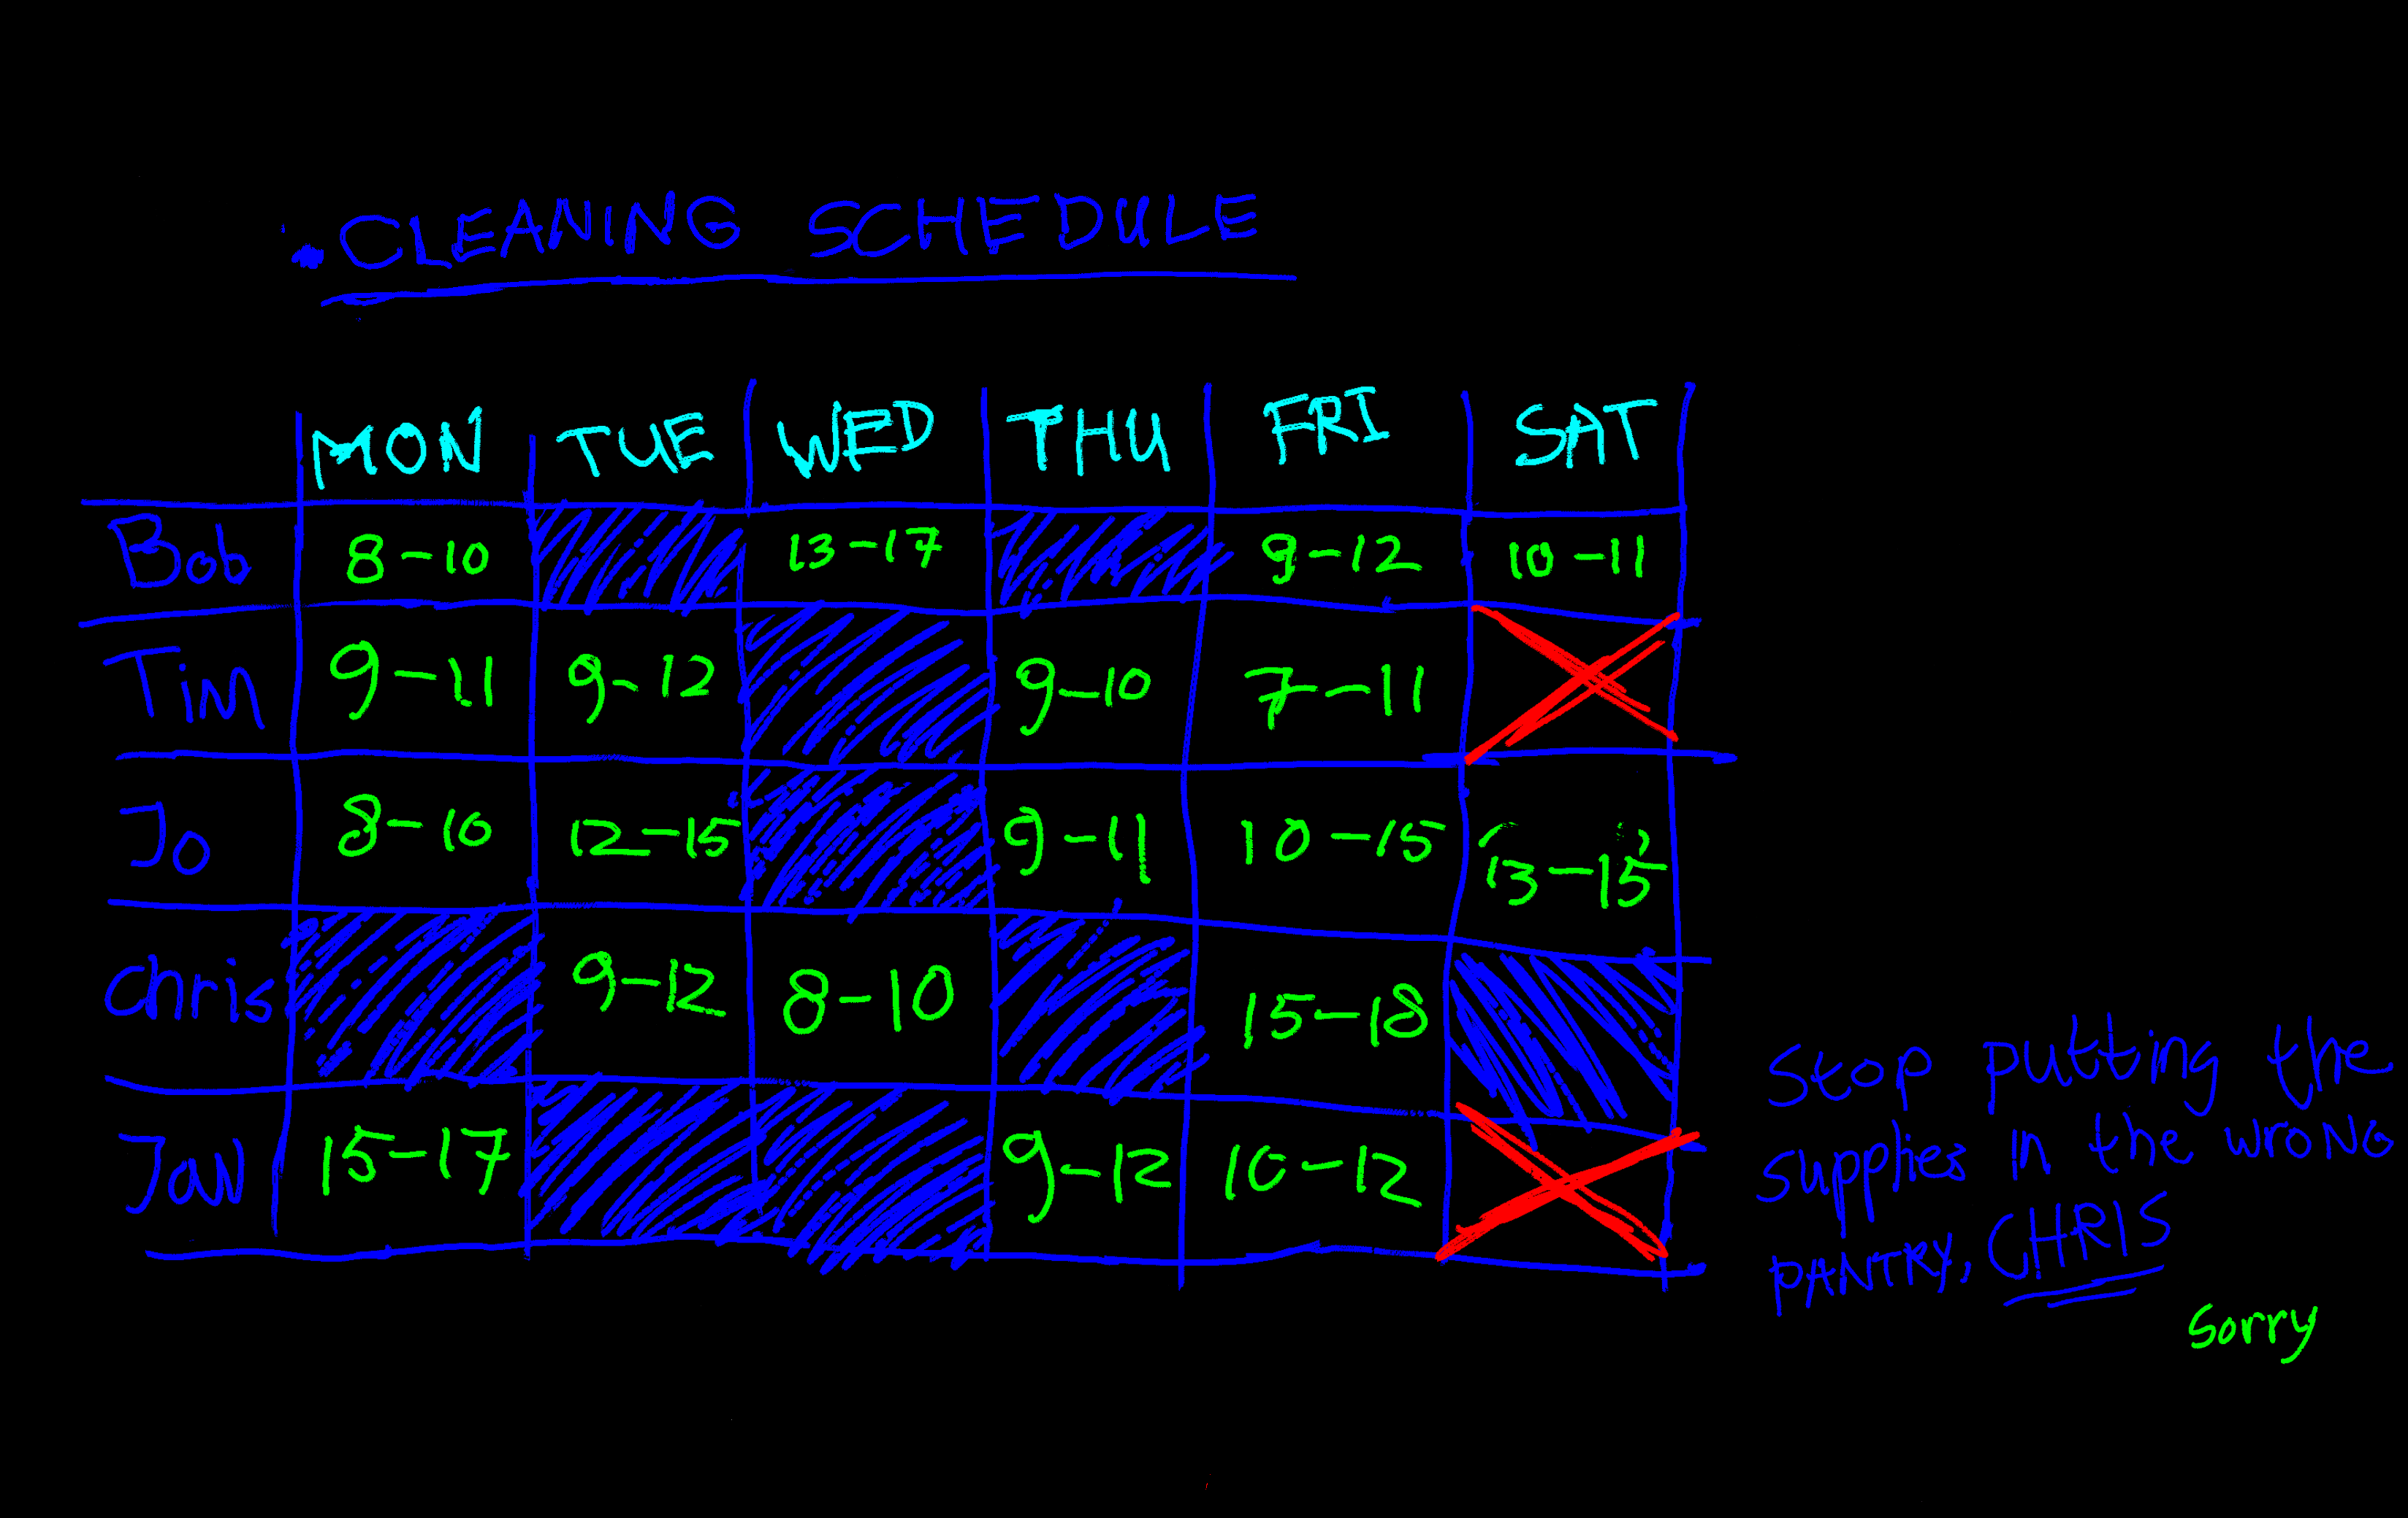 CLEANING SCHEDULE
MON TUE WED THU FRI SAT
Bob 8-10 13-17 9-12 10-11
Tim 9-11 9-12 9-10 7-11
Jo 8-10 12-15 9-11 10-15 13-15
Chris 9-12 8-10 15-18
Jan 15-17 9-12 10-12
Stop putting the
supplies in the wrong
PANTRY, CHRIS
Sorry